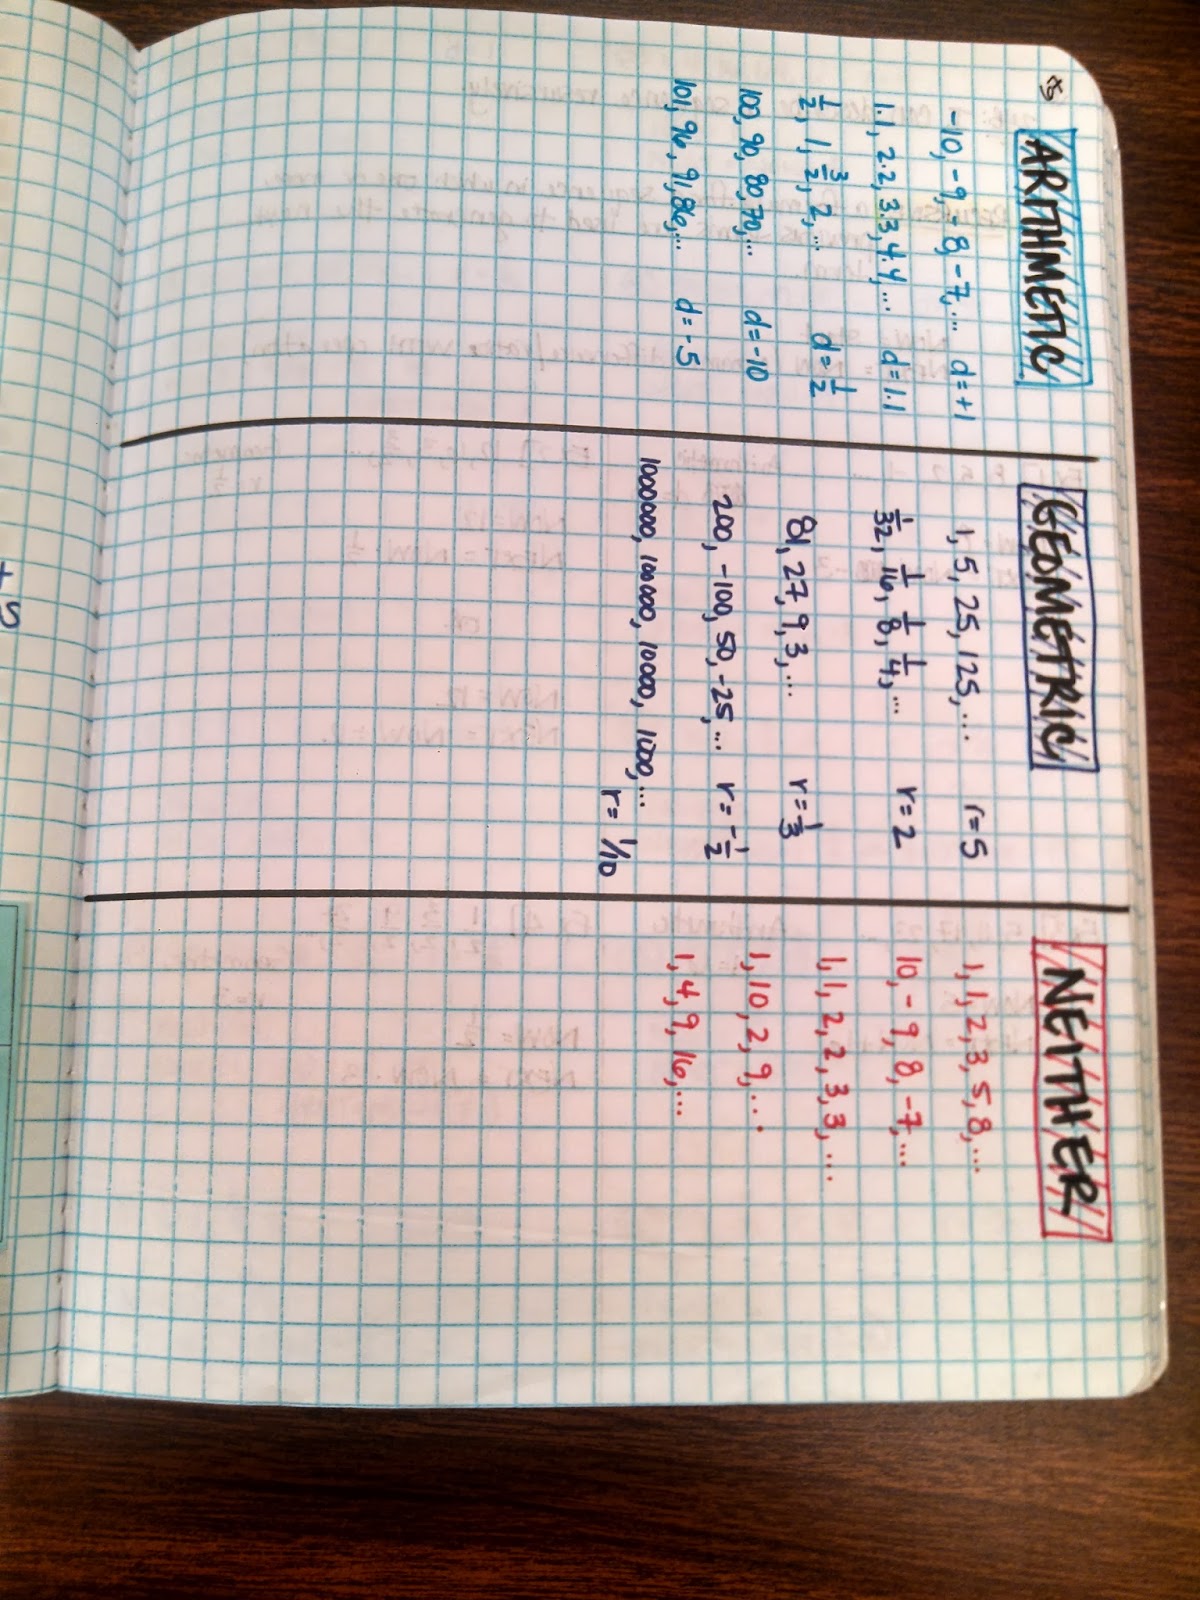 ARITHMETIC
-10, -9, -8, -7, ... d=+1
1.1, 2.2, 3.3, 4.4, ... d=1.1
1/2, 1, 3/2, 2, ... d=1/2
100, 90, 80, 70, ... d=-10
101, 96, 91, 86, ... d=-5
GEOMETRIC
1, 5, 25, 125, ... r=5
1/32, 1/16, 1/8, 1/4, ... r=2
81, 27, 9, 3, ... r=1/3
200, -100, 50, -25, ... r=-1/2
1000000, 100000, 10000, 1000, ...
r= 1/10
NEITHER
1, 1, 2, 3, 5, 8, ...
10, -9, 8, -7, ...
1, 1, 2, 2, 3, 3, ...
1, 10, 2, 9, ...
1, 4, 9, 16, ...